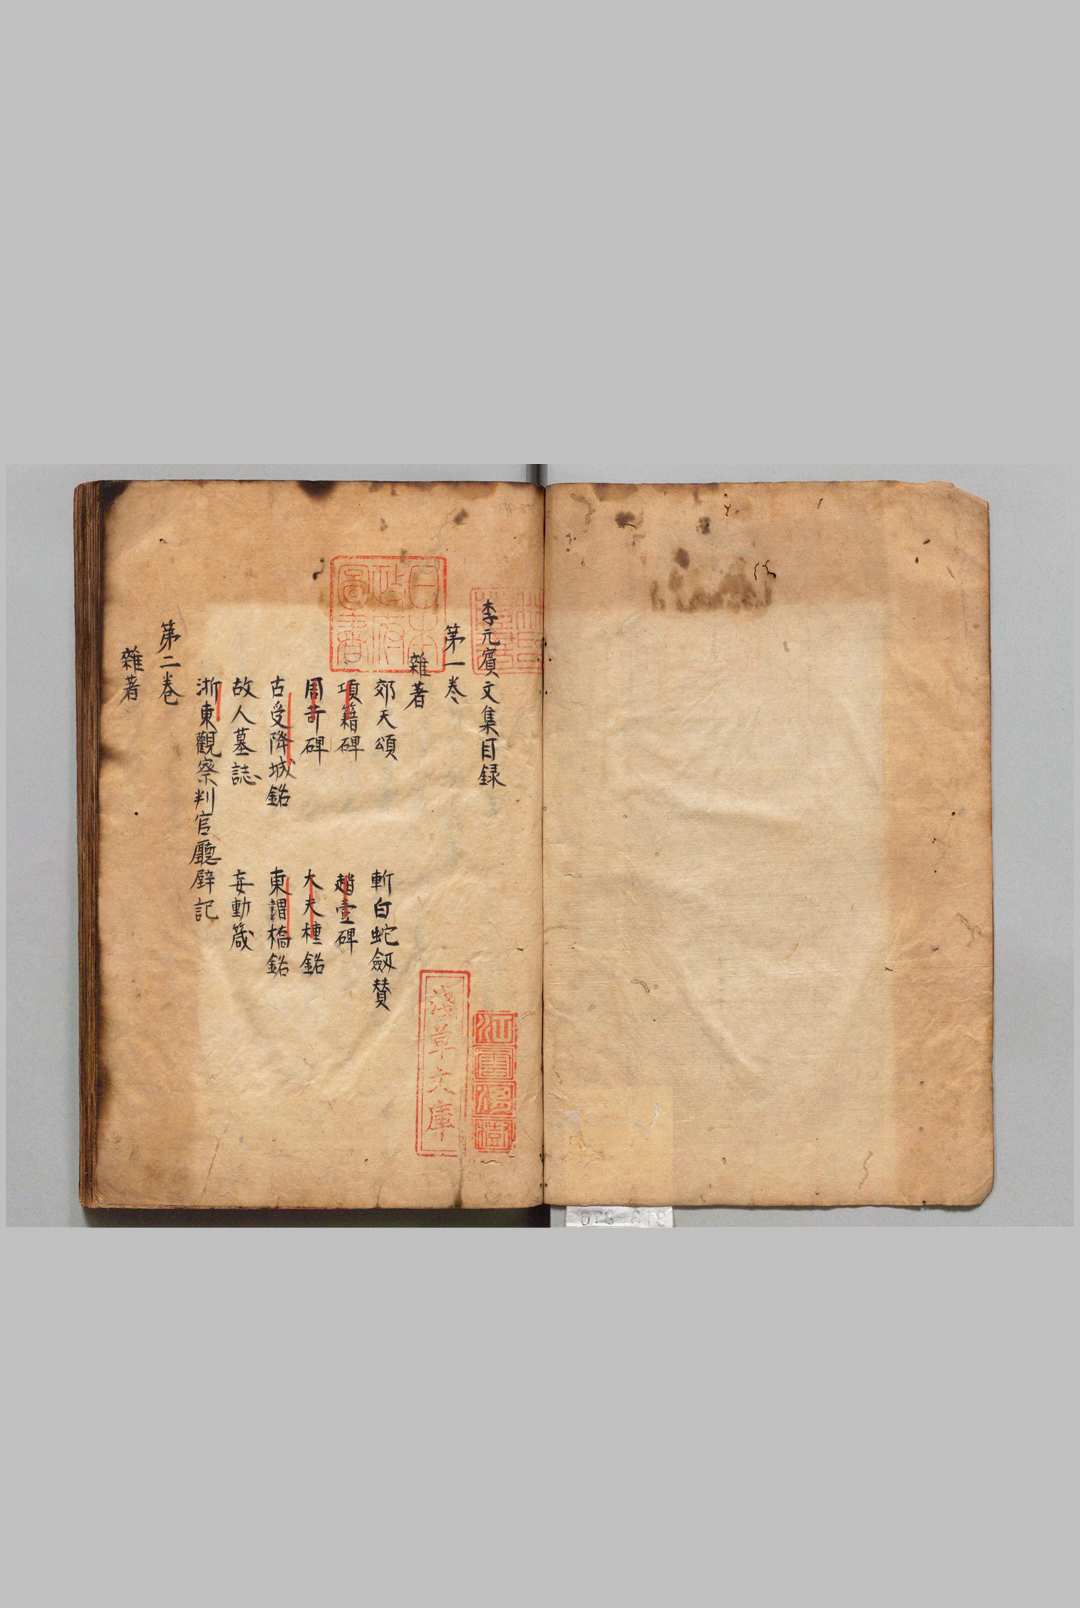 李元賓文集目録
第一巻
雜著
郊天頌　斬白蛇劔賛
項籍碑　趙壹碑
周苛碑　大夫種銘
古受降城銘　東謂橋銘
故人墓誌　妄動箴
浙東觀察判官廳壁記
第二巻
雜著
日本
政府
圖書
淺草文庫
江雲渭樹